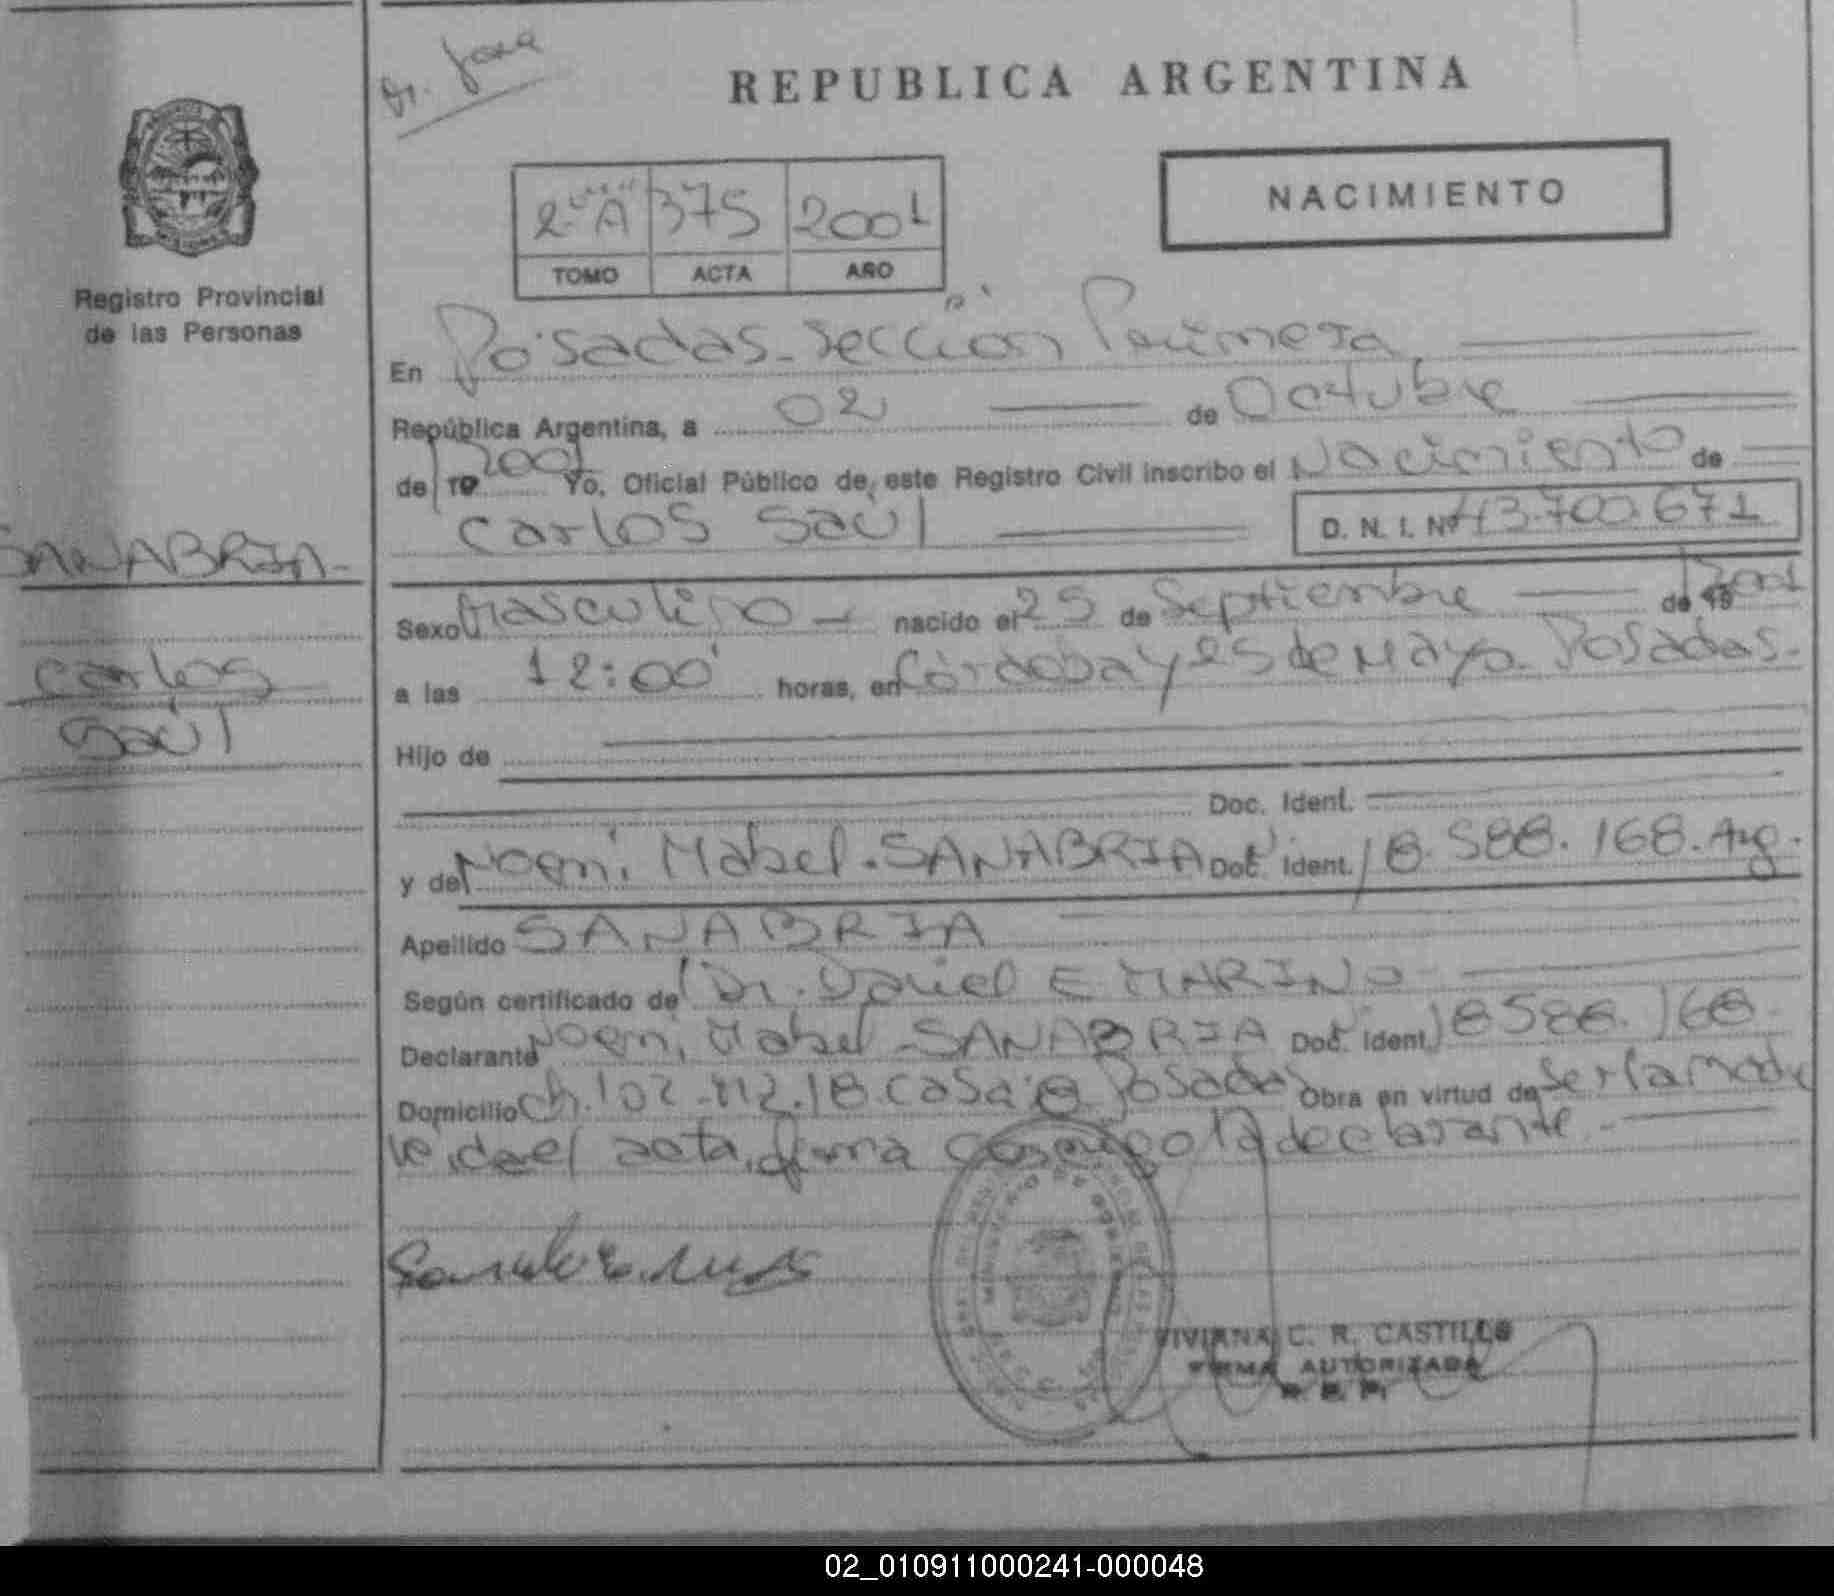 Dr. Jara
REPUBLICA ARGENTINA
NACIMIENTO
2º "A" 375 2001
TOMO ACTA AÑO
Registro Provincial
de las Personas
En Posadas - Sección Primera,
República Argentina, a 02 de Octubre
de 19 2001 Yo, Oficial Público de este Registro Civil inscribo el Nacimiento de
Carlos Saúl D. N. I. Nº 43.700.671
SANABRIA-
Carlos
Saúl
Sexo Masculino - nacido el 25 de Septiembre de 19 2001
a las 12:00 horas, en Córdoba y 25 de Mayo - Posadas-
Hijo de
Doc. Ident.
y de Noemi Mabel - SANABRIA Doc. Ident. 18.588.168. Arg.
Apellido SANABRIA
Según certificado de Dr. Daniel E MARINO
Declarante Noemi Mabel SANABRIA Doc. Ident. 18588.168
Domicilio Ch. 102 - MZ. 18 Casa 8 Posadas Obra en virtud de ser la madre
leída el acta, firma conmigo la declarante.-
VIVIANA C. R. CASTILLO
FIRMA AUTORIZADA
R. P. P.
02_010911000241-000048